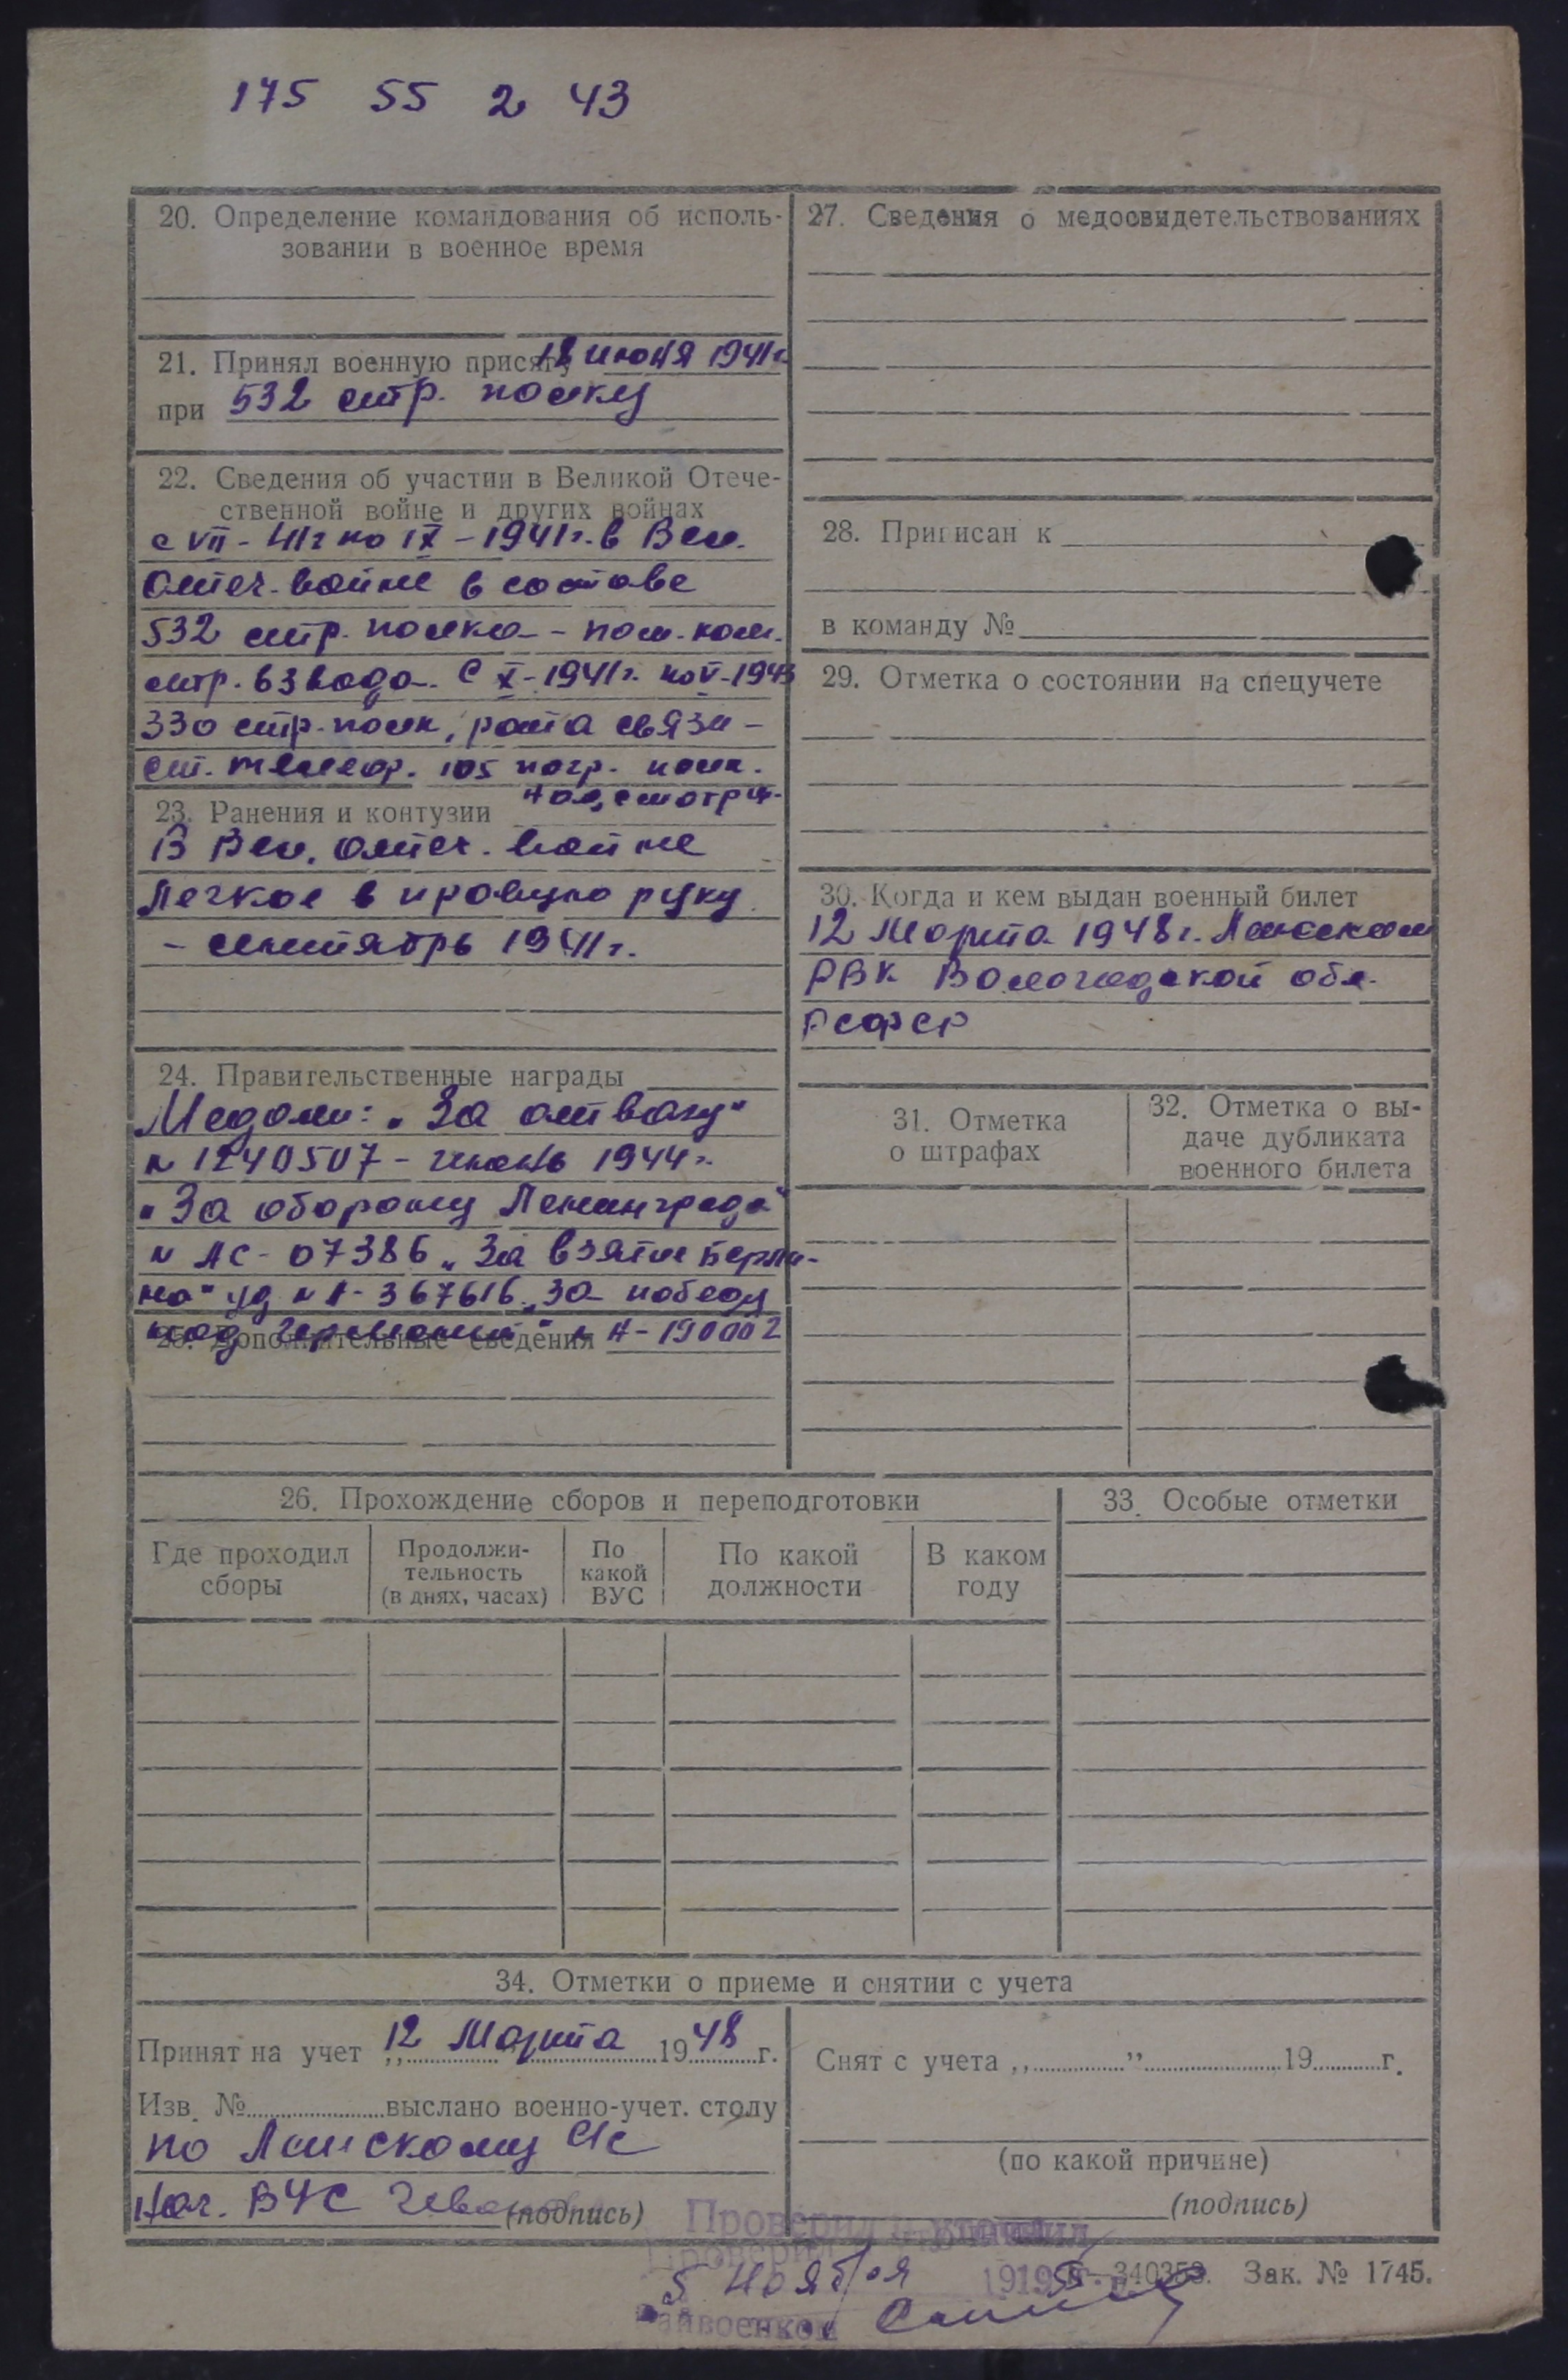 175 55 2 43
20. Определение командования об исполь-
зовании в военное время
21. Принял военную присягу 18 июня 1941г
при 532 стр. полку
22. Сведения об участии в Великой Отече-
ственной войне и других войнах
с VII-41г по IX-1941г. в Вел.
Отеч. войне в составе
532 стр. полка - пом. ком.
стр. взвода. С X-1941г. по V-1943
330 стр. полк, рота связи -
ст. телеф. 105 погр. полк.
23. Ранения и контузии
В Вел. отеч. войне
Легкое в правую руку
- сентябрь 1941г.
24. Правительственные награды
Медали: "За отвагу"
N 1240507 - июнь 1944г.
"За оборону Ленинграда"
N ЛС-07386 "За взятие Берли-
на" уд N А-367616 "За победу
над Германией" N Н-190002
25. Дополнительные сведения
27. Сведения о медосвидетельствованиях
28. Приписан к
в команду №
29. Отметка о состоянии на спецучете
30. Когда и кем выдан военный билет
12 Марта 1948г.
РВК Вологодской обл.
РСФСР
31. Отметка
о штрафах
32. Отметка о вы-
даче дубликата
военного билета
26. Прохождение сборов и переподготовки
Где проходил
сборы
Продолжи-
тельность
(в днях, часах)
По
какой
ВУС
По какой
должности
В каком
году
33. Особые отметки
34. Отметки о приеме и снятии с учета
Принят на учет „12 Марта 1948 г.
Изв. № выслано военно-учет. столу
по
Нач. ВУС (подпись)
Снят с учета „ ” 19 г.
(по какой причине)
(подпись)
Проверил
5 ноября 19
Райвоенком
Зак. № 1745.